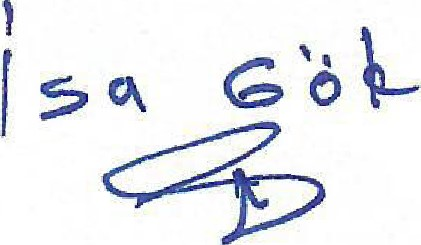 İsa Gök